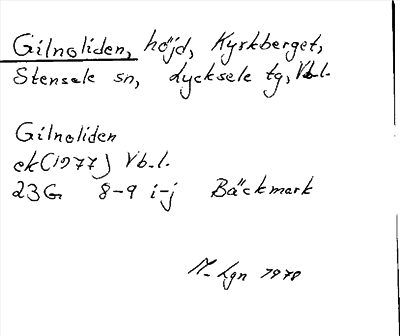 Gilnoliden, höjd, Kyrkberget,
Stensele sn, Lycksele tg, Vb.l.
Gilnoliden
ek(1977) Vb.l.
23G 8-9 i-j Bäckmark
M-Lgn 1978